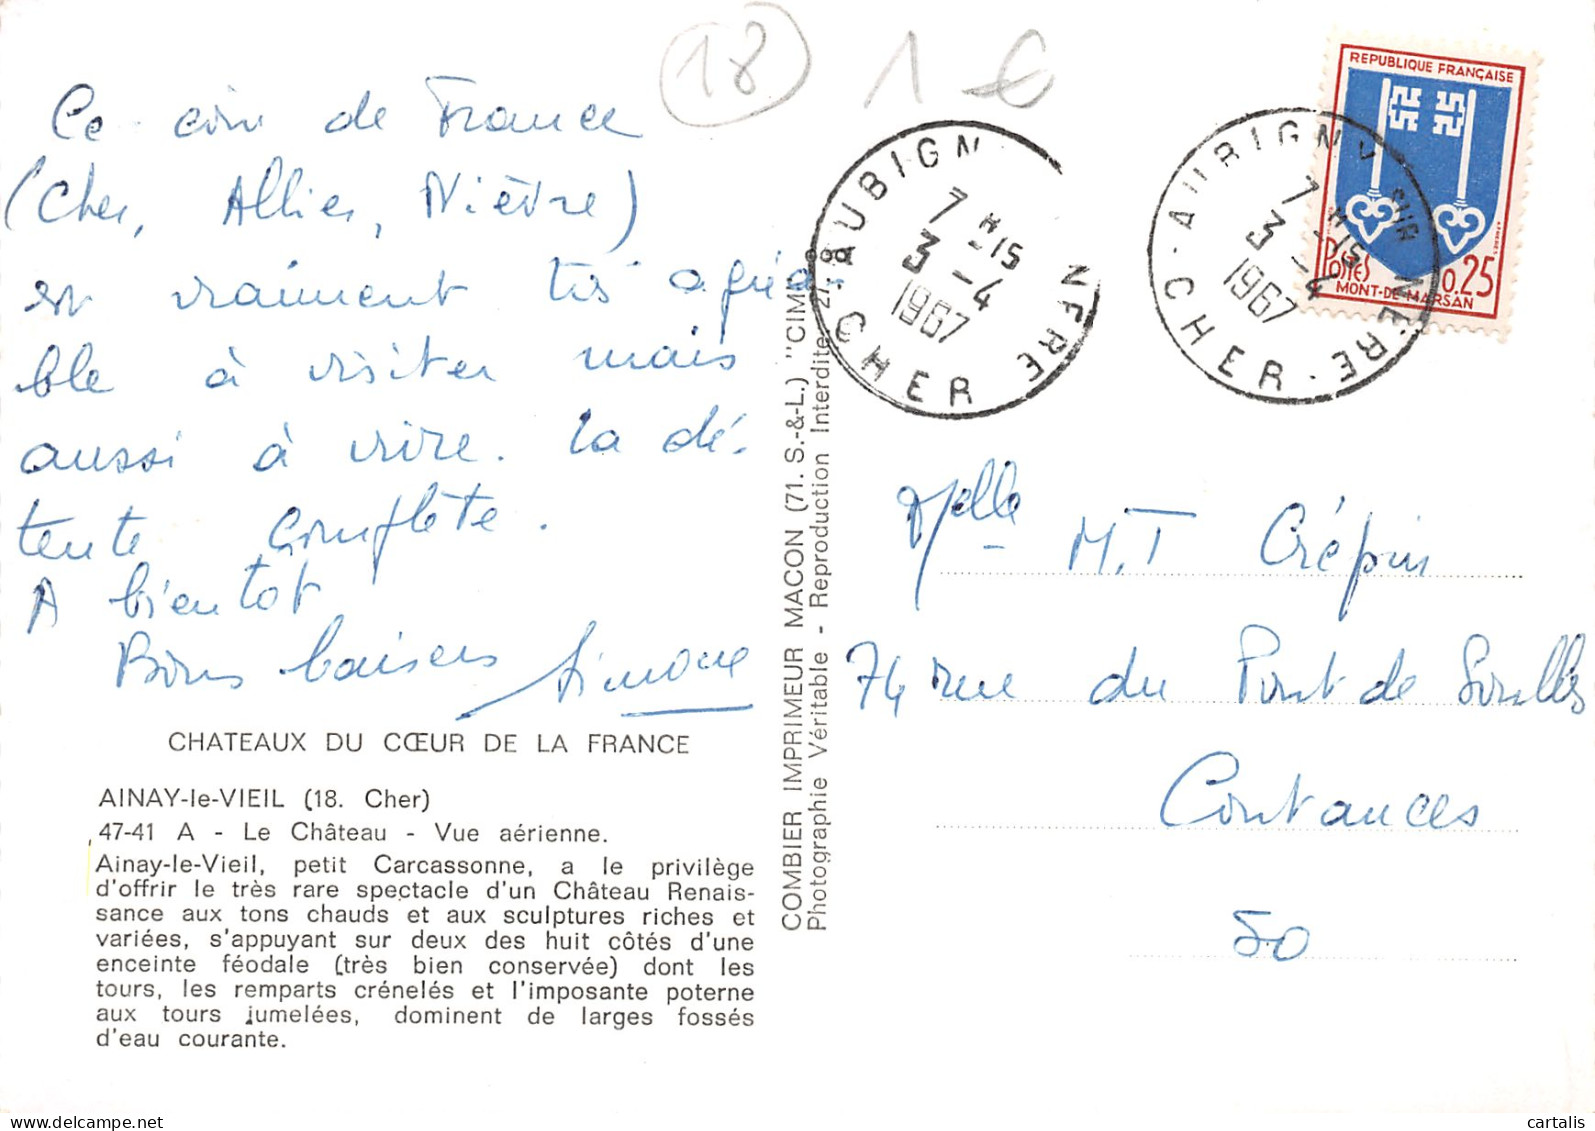 18 1 €
Ce coin de France
(Cher, Allier, Nièvre)
est vraiment très agréa
ble à visiter mais
aussi à vivre. La dé-
tente complète.
A bientôt
Bons baisers Simone
CHATEAUX DU CŒUR DE LA FRANCE
AINAY-le-VIEIL (18. Cher)
47-41 A - Le Château - Vue aérienne.
Ainay-le-Vieil, petit Carcassonne, a le privilège
d'offrir le très rare spectacle d'un Château Renais-
sance aux tons chauds et aux sculptures riches et
variées, s'appuyant sur deux des huit côtés d'une
enceinte féodale (très bien conservée) dont les
tours, les remparts crénelés et l'imposante poterne
aux tours jumelées, dominent de larges fossés
d'eau courante.
COMBIER IMPRIMEUR MACON (71. S.-&-L.) "CIM"
Photographie Véritable - Reproduction Interdite.
AUBIGN NERE
7 H 15
3 - 4
1967
CHER
AUBIGNY SUR NERE
7 H 15
3 - 4
1967
CHER
REPUBLIQUE FRANÇAISE
POSTES
0,25
MONT-DE-MARSAN
Melle M.T Crépin
74 rue du Pont de Soulles
Coutances
50
cartalis